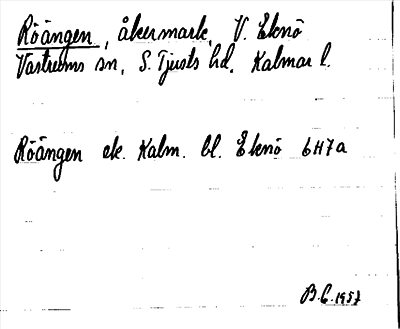 Röängen, åkermark, V. Eknö
Västrums sn, S. Tjusts hd, Kalmar l.
Röängen ek. Kalm. bl. Eknö 6H7a
B.C. 1957